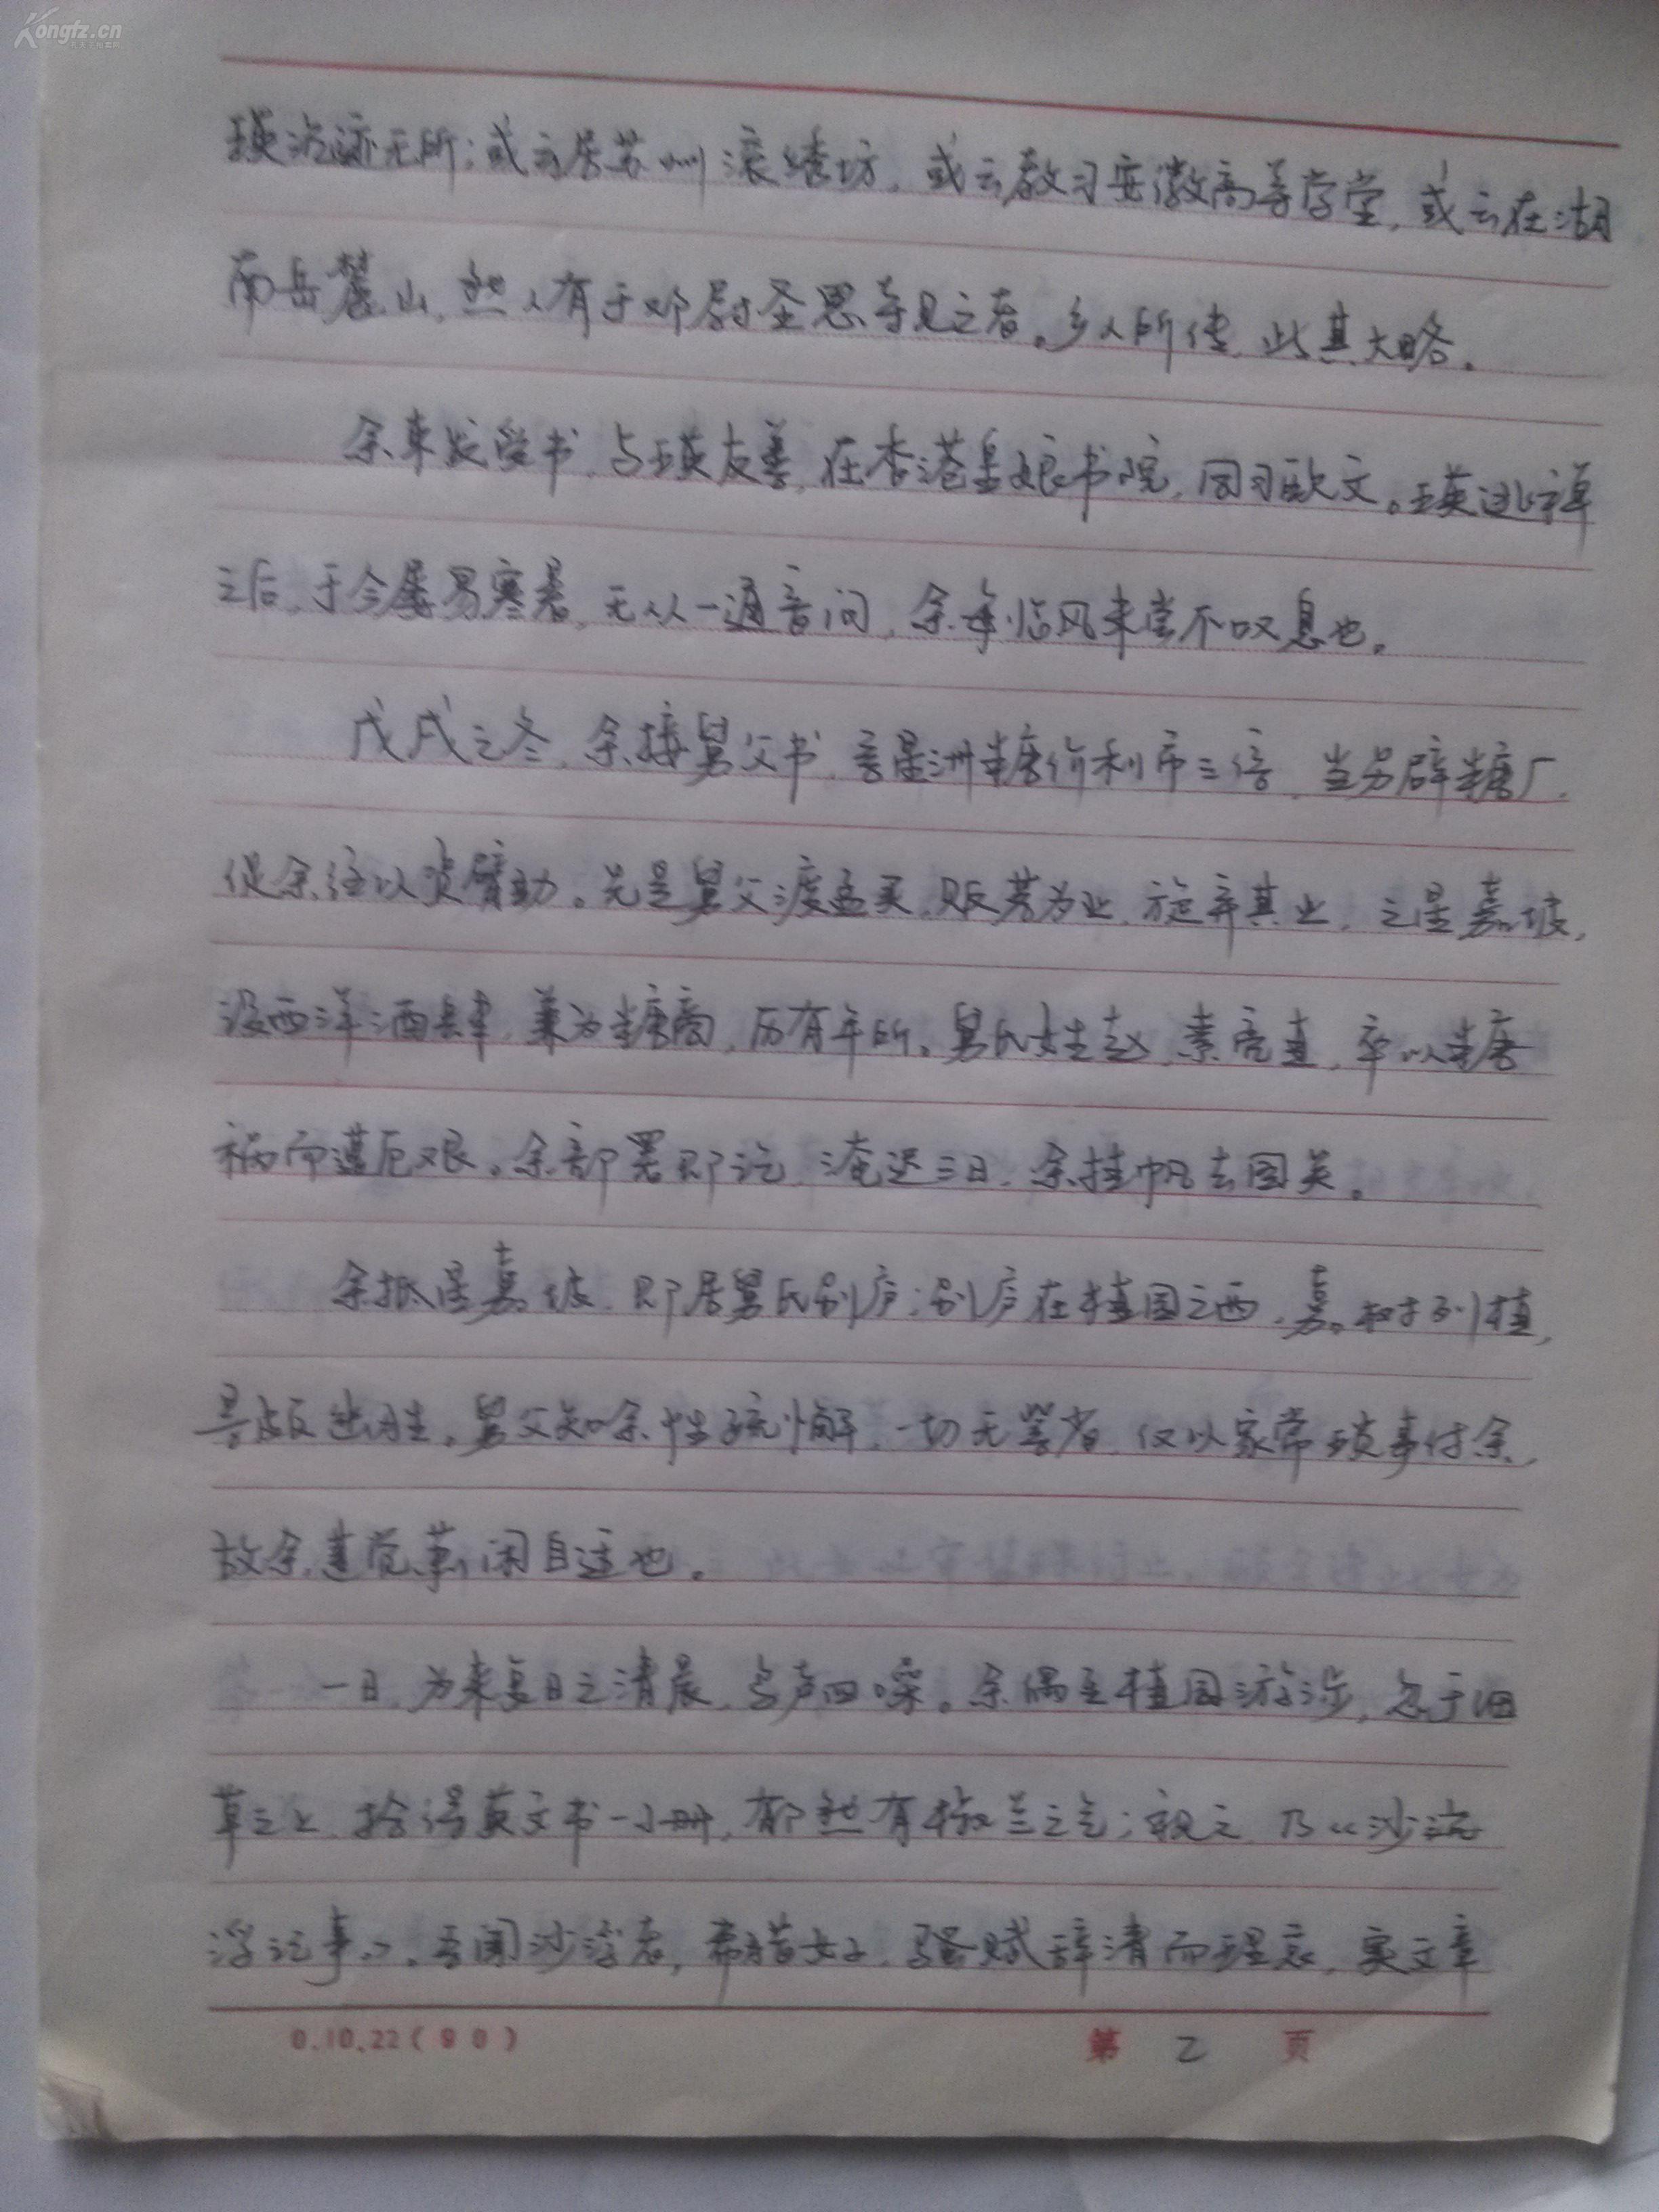 Kongfz.cn
瑛沉迹无所；或云居苏州滚绣坊，或云教习安徽高等学堂，或云在湖
南岳麓山，然人有于邓尉圣恩寺见之者。乡人所传，此其大略。
余束发受书，与瑛友善，在香港皇娘书院，同习欧文。瑛逃禅
之后，于今屡易寒暑，无从一通音问，余每临风未尝不叹息也。
戊戌之冬，余接舅父书，言星洲糖价利市三倍，当另辟糖厂，
促余往以资臂助。先是舅父渡孟买，贩茗为业，旋弃其业，之星嘉坡，
设西洋酒肆，兼为糖商，历有年所。舅氏姓赵，素亮直，卒以糖
祸而遭厄艰。余部署即讫，淹迟三日，余挂帆去国矣。
余抵星嘉坡，即居舅氏别庐；别庐在植园之西，嘉树列植，
景致幽胜。舅父知余性疏懒，一切无訾省，仅以家常琐事付余，
故余遂觉萧闲自适也。
一日，为来复日之清晨，鸟声四噪。余偶至植园游涉，忽于细
草之上，拾得英文书一小册，郁然有椒兰之气；视之，乃《沙浮
浮记事》。吾闻沙浮者，希腊女子，骚赋辞清而理哀，实文章
0.10.22(90)
第 2 页